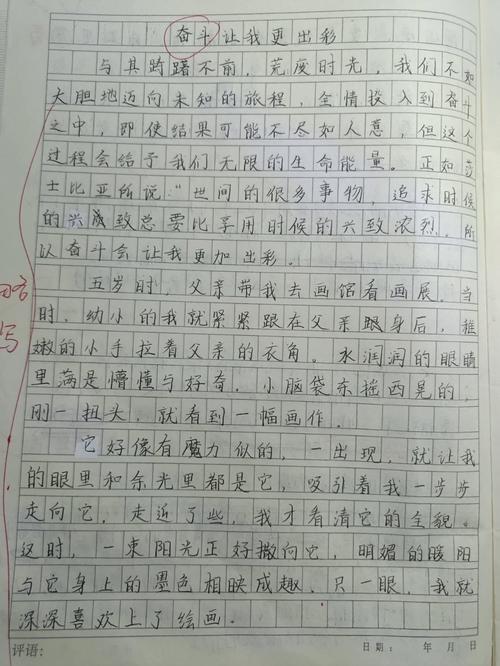 奋斗让我更出彩
与其踌躇不前，荒度时光，我们不如
大胆地迈向未知的旅程，全情投入到奋斗
之中，即使结果可能不尽如人意，但这个
过程会给予我们无限的生命能量。正如莎
士比亚所说："世间的很多事物，追求时候
的兴致总要比享用时候的兴致浓烈。所
以奋斗会让我更加出彩。
五岁时，父亲带我去画馆看画展。当
时，幼小的我就紧紧跟在父亲跟身后，稚
嫩的小手拉着父亲的衣角。水润润的眼睛
里满是懵懂与好奇。小脑袋东摇西晃的，
刚一扭头，就看到一幅画作。
它好像有魔力似的，一出现，就让我
的眼里和余光里都是它，吸引着我一步步
走向它，走近了些，我才看清它的全貌。
这时，一束阳光正好撒向它，明媚的暖阳
与它身上的墨色相映成趣。只一眼，我就
深深喜欢上了绘画。
略写
评语：
日期： 年 月 日